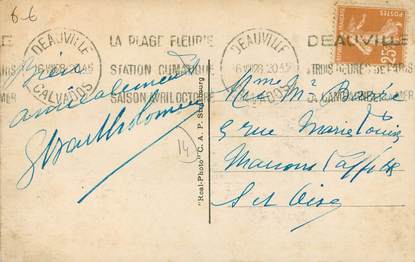 6-6
DEAUVILLE
CALVADOS
LA PLAGE FLEURIE
STATION CLIMATIQUE
SAISON AVRIL OCTOBRE
DEAUVILLE
20 45
CALVADOS
DEAUVILLE
A TROIS HEURES DE PARIS
25c
Bien
amicalement
GBartholomé
14
"Real-Photo" C. A. P. Strasbourg
Mme Mr
5 rue Marie Louise
Maisons Laffitte
S et Oise